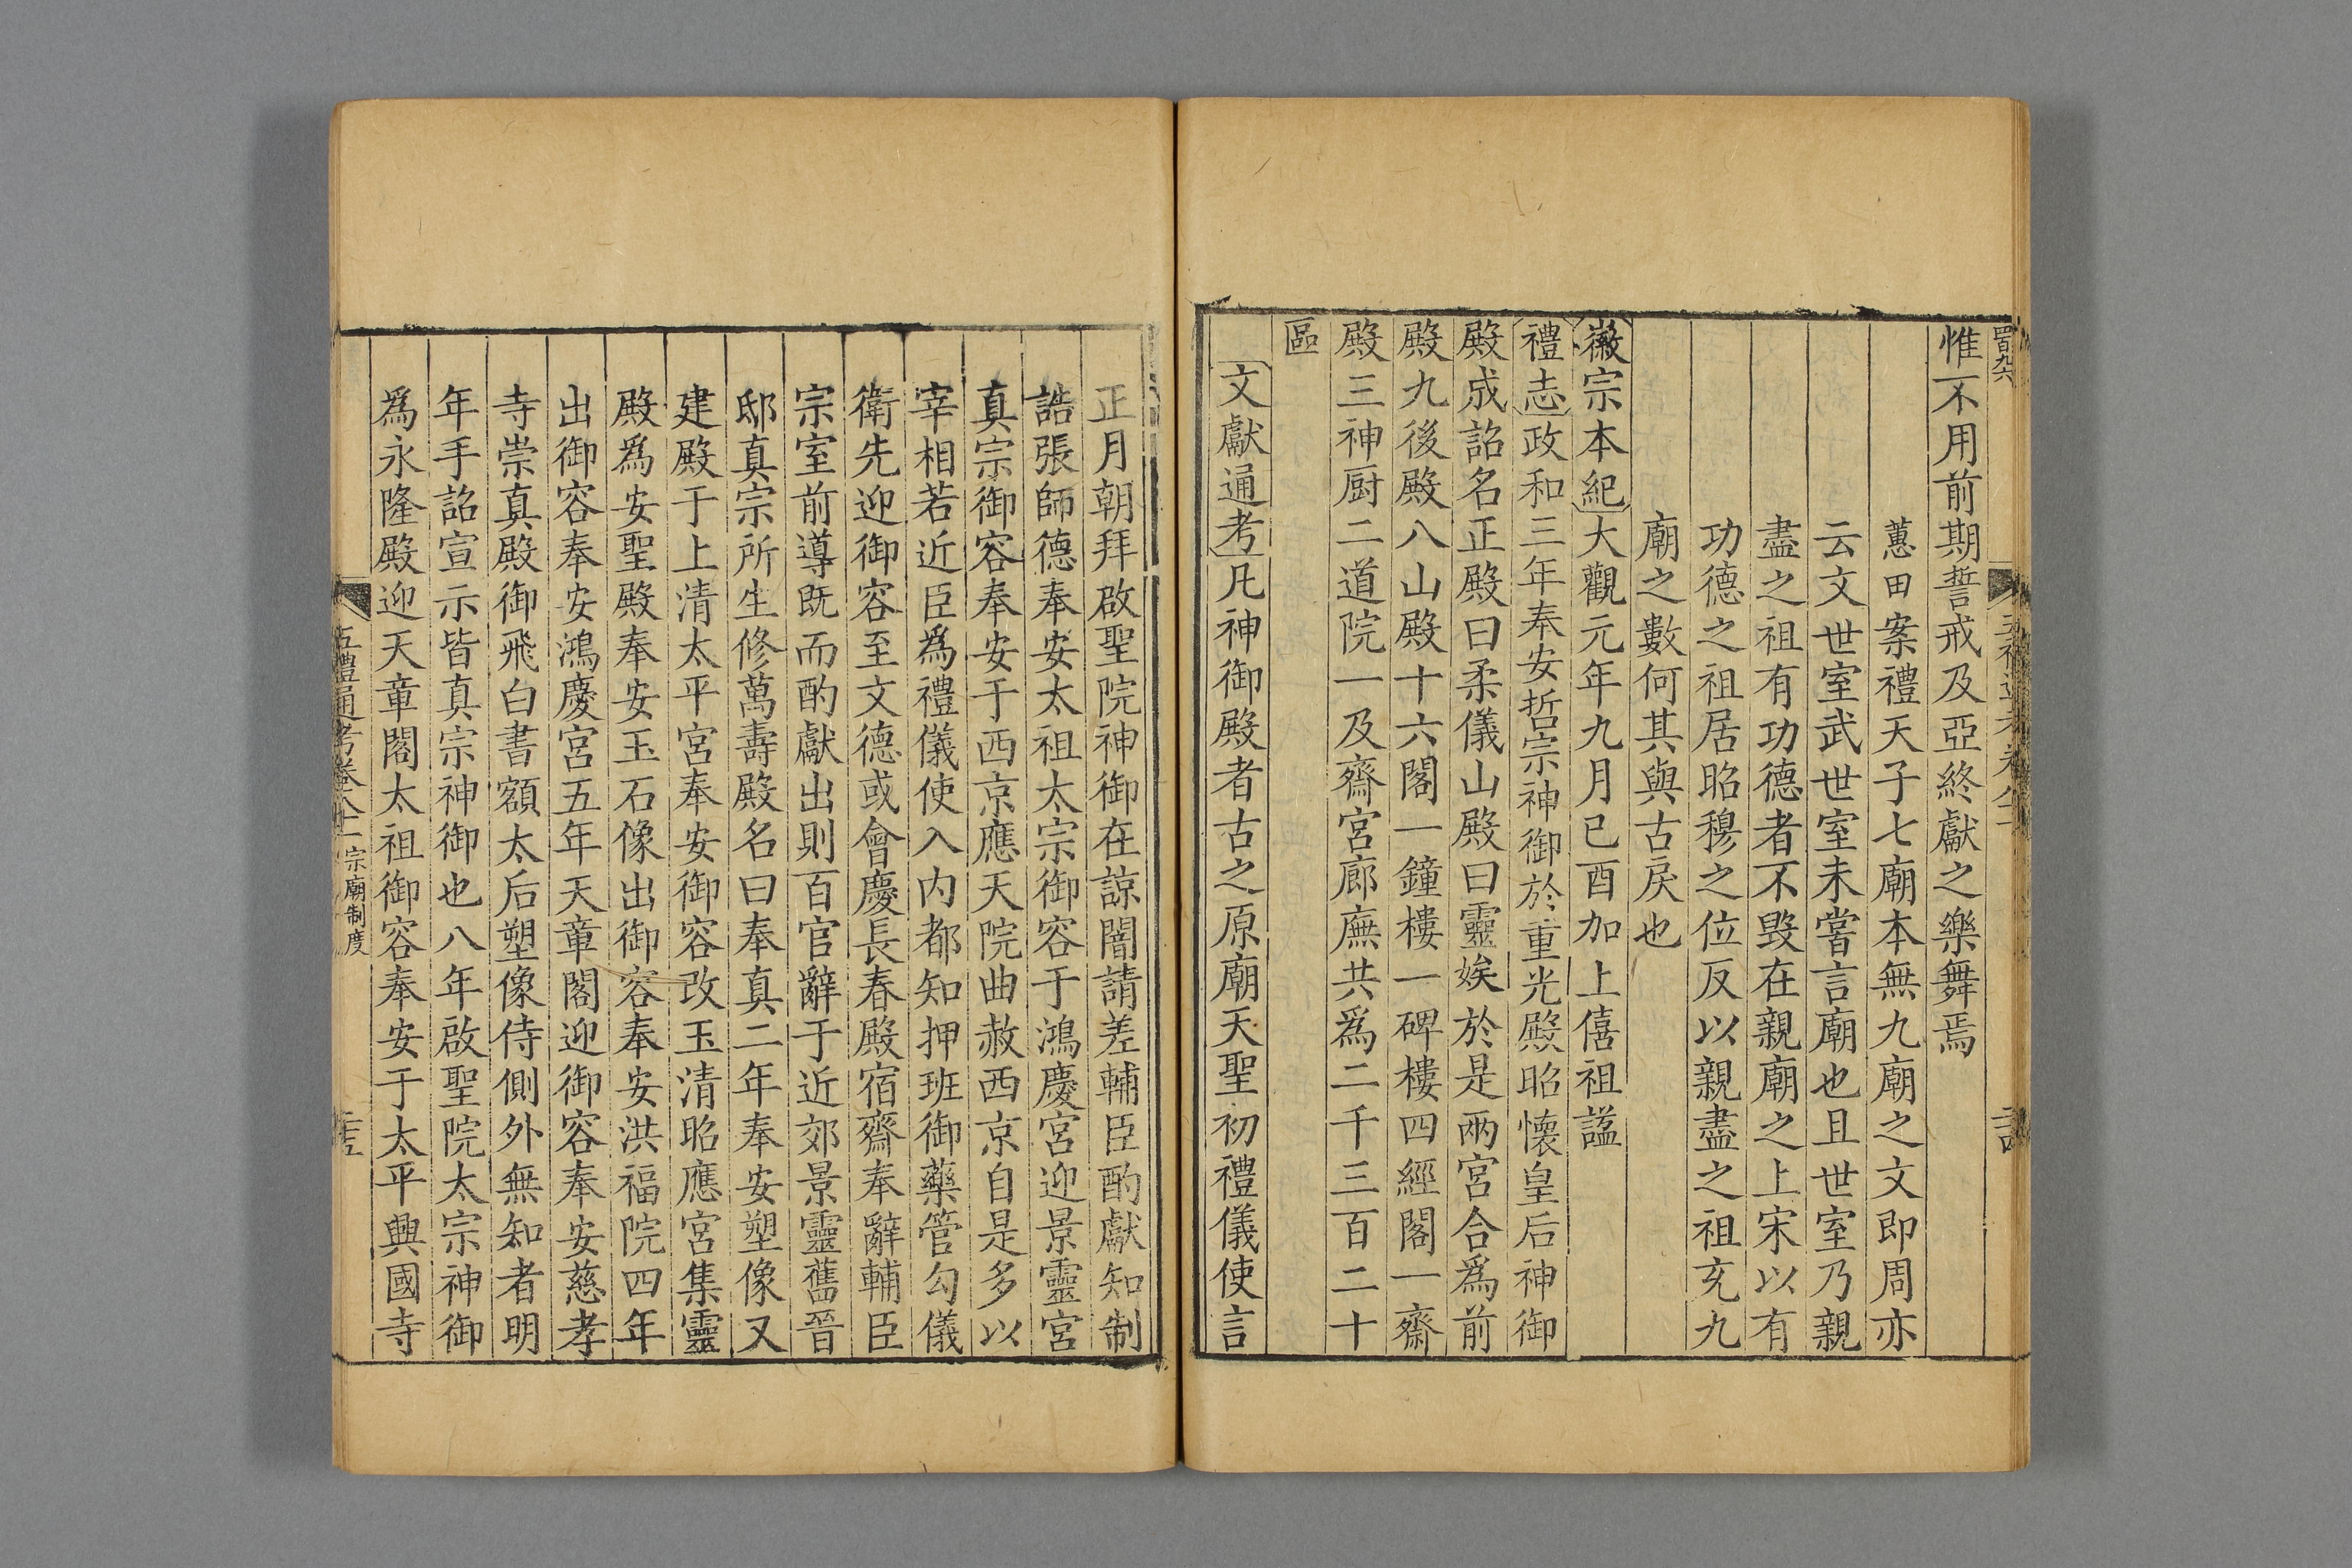 惟不用前期誓戒及亞終獻之樂舞焉
蕙田案禮天子七廟本無九廟之文即周亦
云文世室武世室未嘗言廟也且世室乃親
盡之祖有功德者不毀在親廟之上宋以有
功德之祖居昭穆之位反以親盡之祖充九
廟之數何其與古戾也
徽宗本紀大觀元年九月已酉加上僖祖謚
禮志政和三年奉安哲宗神御於重光殿昭懷皇后神御
殿成詔名正殿曰柔儀山殿曰靈娭於是兩宮合爲前
殿九後殿八山殿十六閣一鐘樓一碑樓四經閣一齋
殿三神厨二道院一及齋宮廊廡共爲二千三百二十
區
文獻通考凡神御殿者古之原廟天聖初禮儀使言
正月朝拜啟聖院神御在諒闇請差輔臣酌獻知制
誥張師德奉安太祖太宗御容于鴻慶宮迎景靈宮
真宗御容奉安于西京應天院曲赦西京自是多以
宰相若近臣爲禮儀使入内都知押班御藥管勾儀
衛先迎御容至文德或會慶長春殿宿齋奉辭輔臣
宗室前導既而酌獻出則百官辭于近郊景靈舊晉
邸真宗所生修萬壽殿名曰奉真二年奉安塑像又
建殿于上清太平宮奉安御容改玉清昭應宮集靈
殿爲安聖殿奉安玉石像出御容奉安洪福院四年
出御容奉安鴻慶宮五年天章閣迎御容奉安慈孝
寺崇真殿御飛白書額太后塑像侍側外無知者明
年手詔宣示皆真宗神御也八年啟聖院太宗神御
爲永隆殿迎天章閣太祖御容奉安于太平興國寺
五禮通考卷八十二 宗廟制度